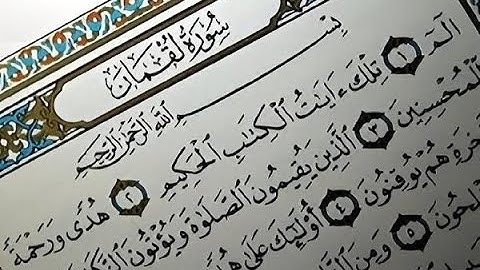 سُورَةُ لُقْمَانَ
بِسْمِ ٱللَّهِ ٱلرَّحْمَٰنِ ٱلرَّحِيمِ
الٓمٓ ١ تِلْكَ ءَايَٰتُ ٱلْكِتَٰبِ ٱلْحَكِيمِ ٢ هُدًى وَرَحْمَةً
لْمُحْسِنِينَ ٣ ٱلَّذِينَ يُقِيمُونَ ٱلصَّلَوٰةَ وَيُؤْتُونَ ٱلزَّكَ
خِرَةِ هُمْ يُوقِنُونَ ٤ أُو۟لَٰٓئِكَ عَلَىٰ هُدًى
لِحُونَ ٥ وَمِنَ